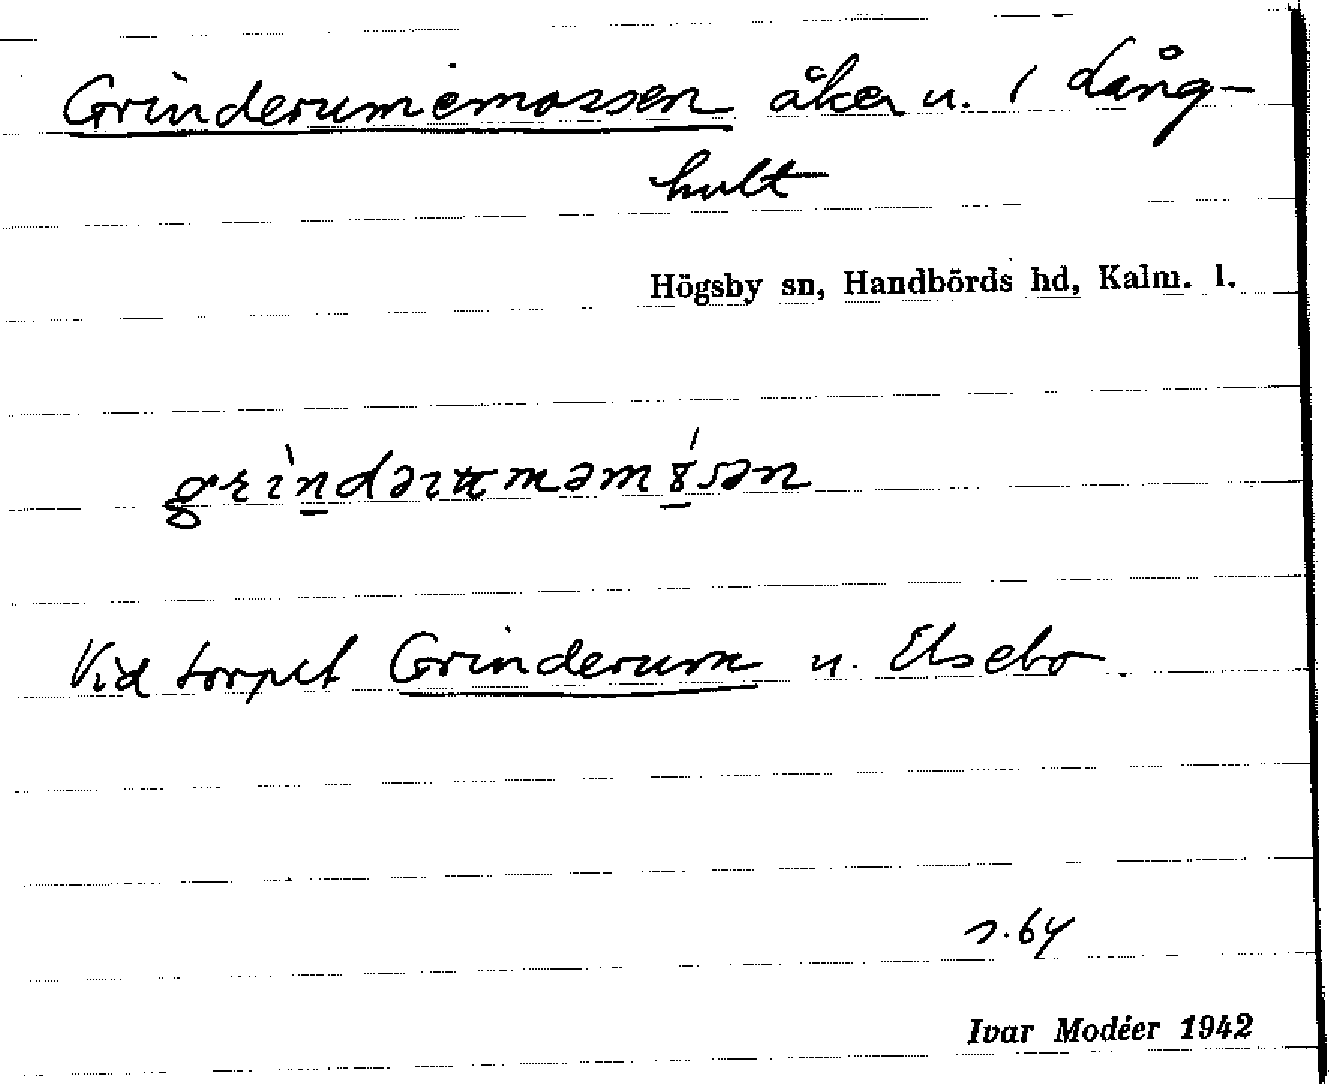 Grinderumemossen åker u. 1 Lång-
hult
Högsby sn, Handbörds hd, Kalm. l.
Vid torpet Grinderum u. Elsebo.
s. 64
Ivar Modéer 1942